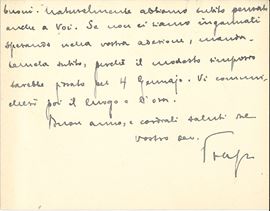 buoni. Naturalmente abbiamo subito pensato
anche a Voi. Se non ci siamo ingannati
sperando nella vostra adesione, manda-
temela subito, perché il modesto simposio
sarebbe pel 4 Gennajo. Vi comuni-
cherei poi il luogo e l'ora.
Buon anno, e cordiali saluti dal
vostro